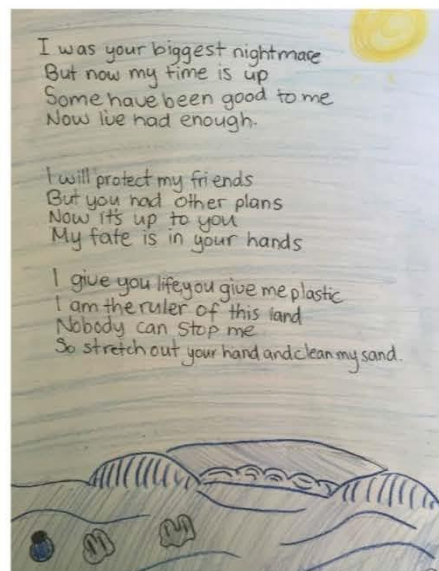 I was your biggest nightmare
But now my time is up
Some have been good to me
Now Ive had enough.
I will protect my friends
But you had other plans
Now it's up to you
My fate is in your hands
I give you life, you give me plastic
I am the ruler of this land
Nobody can stop me
So stretch out your hand and clean my sand.